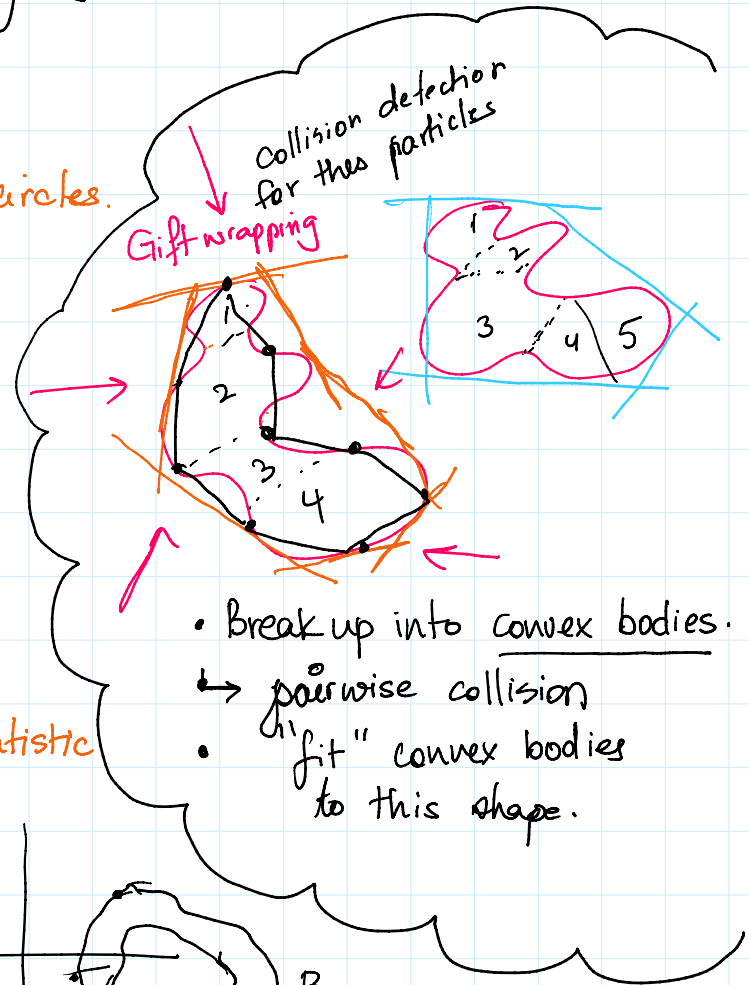 collision detection
for thes particles
circles.
Gift wrapping
1
2
3
4
5
1
2
3
4
• Break up into convex bodies.
↳ pairwise collision
• "fit" convex bodies
to this shape.